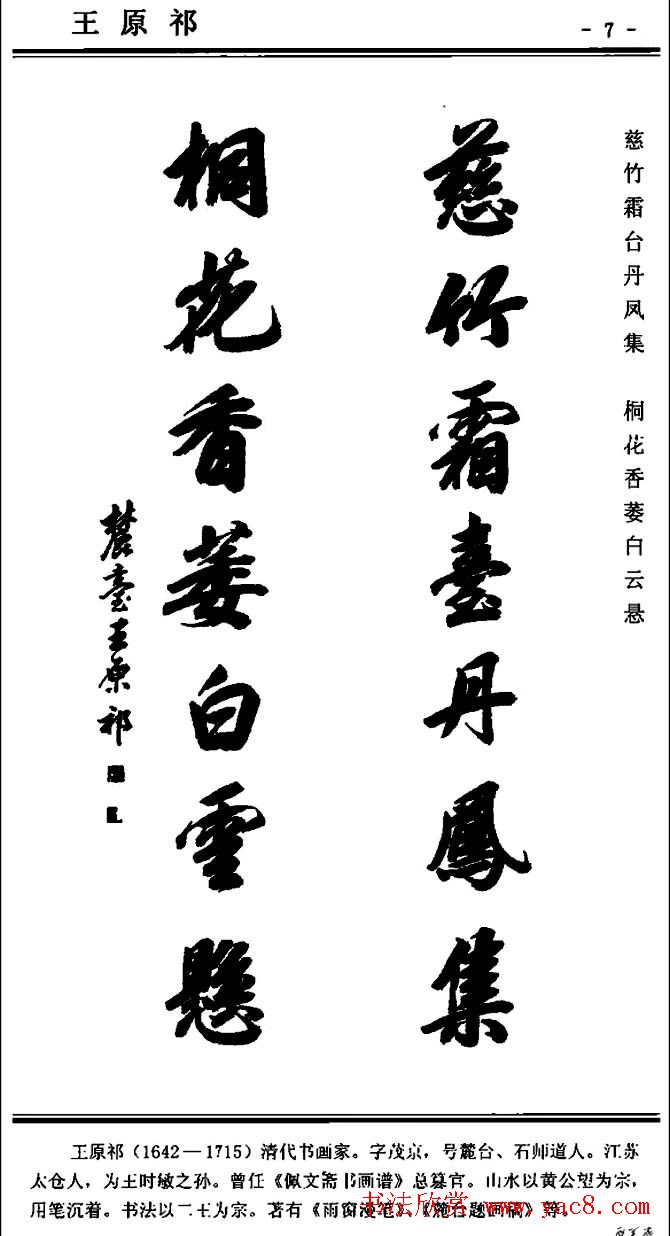 王原祁
- 7 -
慈竹霜台丹凤集 桐花香萎白云悬
慈竹霜臺丹鳳集
桐花香萎白雲懸
麓臺王原祁
王原祁（1642—1715）清代书画家。字茂京，号麓台、石师道人。江苏
太仓人，为王时敏之孙。曾任《佩文斋书画谱》总篡官。山水以黄公望为宗，
用笔沉着。书法以二王为宗。著有《雨窗漫笔》、《麓台题画稿》等。
书法欣赏 www.yac8.com